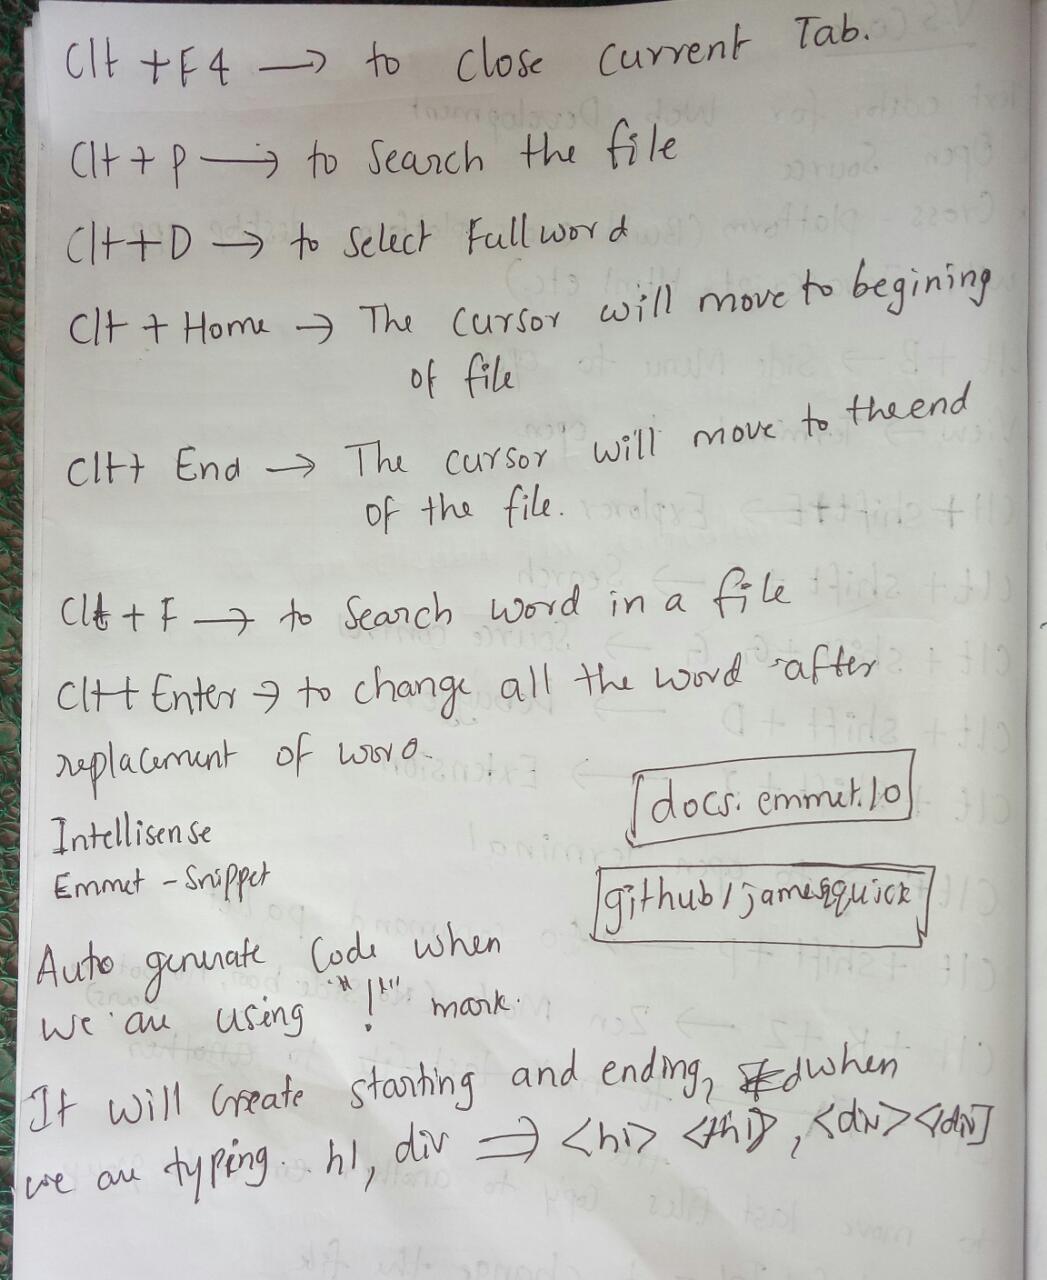 Clt + F4 → to close current Tab.
Clt + P → to Search the file
Clt + D → to Select Full word
Clt + Home → The cursor will move to begining
of file
Clt + End → The cursor will move to the end
of the file.
Clt + F → to Search word in a file
Clt + Enter → to change all the word after
replacement of word.
docs. emmet.io
Intellisense
Emmet - Snippet
github/jamesqquick
Auto generate Code when
we are using "!" mark.
It will Create starting and ending, when
we are typing. h1, div ⇒ <h1> </h1>, <div></div>